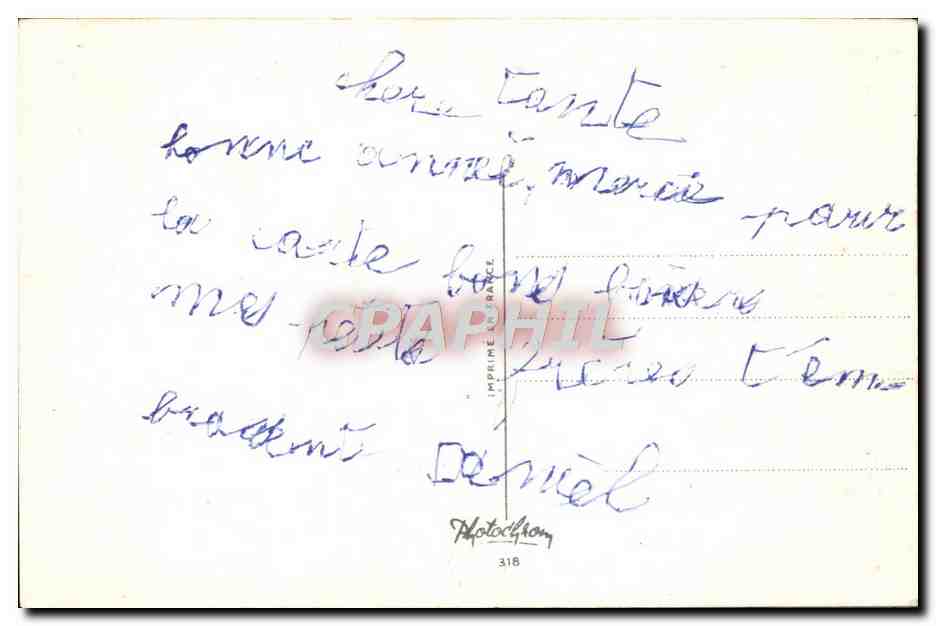 chere Tante
bonne année, merci pour
la carte bons baisers
mes petits frères t'em-
brassent Danièl
IMPRIMÉ EN FRANCE
CPAPHIL
Photochrom
318